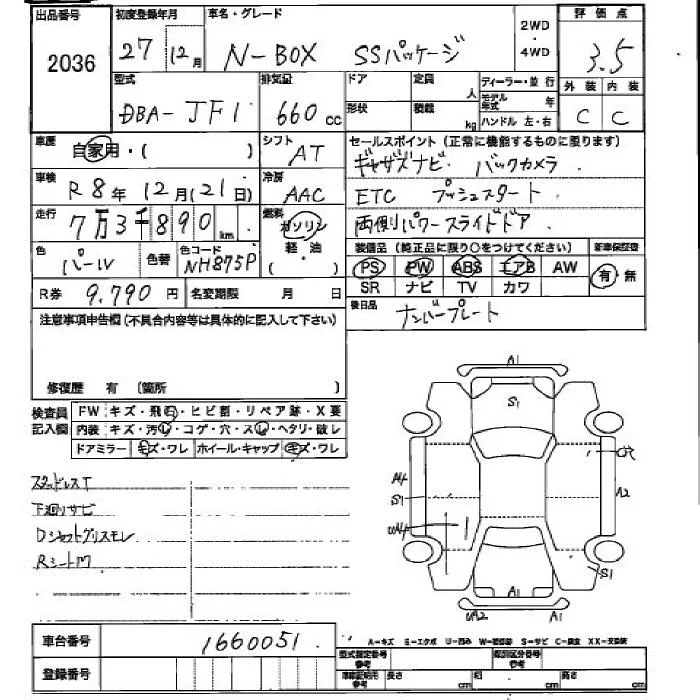 出品番号 初度登録年月 車名・グレード 2WD 評価点
2036 27 12月 N-BOX SSパッケージ 4WD 3.5
型式 排気量 ドア 定員 人 ディーラー・並行 外装 内装
DBA-JF1 660cc 形状 積載 kg モデル年式 年 C C
ハンドル 左・右
車歴 自家用・( ) シフト AT セールスポイント(正常に機能するものに限ります)
ギャザズナビ バックカメラ
車検 R8年12月(21日) 冷房 AAC ETC プッシュスタート
走行 7万3千890km 燃料 ガソリン 両側パワースライドドア
軽・油
( )
色 パール 色替 色コード NH875P 装備品(純正品に限り○をつけてください) 新車保証書
PS PW ABS エアB AW 有・無
R券 9,790円 名変期限 月 日 SR ナビ TV カワ
注意事項申告欄(不具合内容等は具体的に記入して下さい) 後日品 ナンバープレート
修復歴 有 (箇所 )
検査員 FW キズ・飛石・ヒビ割・リペア跡・X要
記入欄 内装 キズ・汚レ・コゲ・穴・スレ・ヘタリ・破レ
ドアミラー キズ・ワレ ホイール・キャップ キズ・ワレ
スタッドレスT
下廻りサビ
Dシャフトグリスモレ
A1
S1
A4
S1
A2
S1
A1
A1
車台番号 1660051
A-キズ E-エクボ U-凹み W-補修跡 S-サビ C-腐食 XX-交換済
登録番号 型式指定番号 参考 類別区分番号 参考
車庫証明用 参考 長さ cm 幅 cm 高さ cm